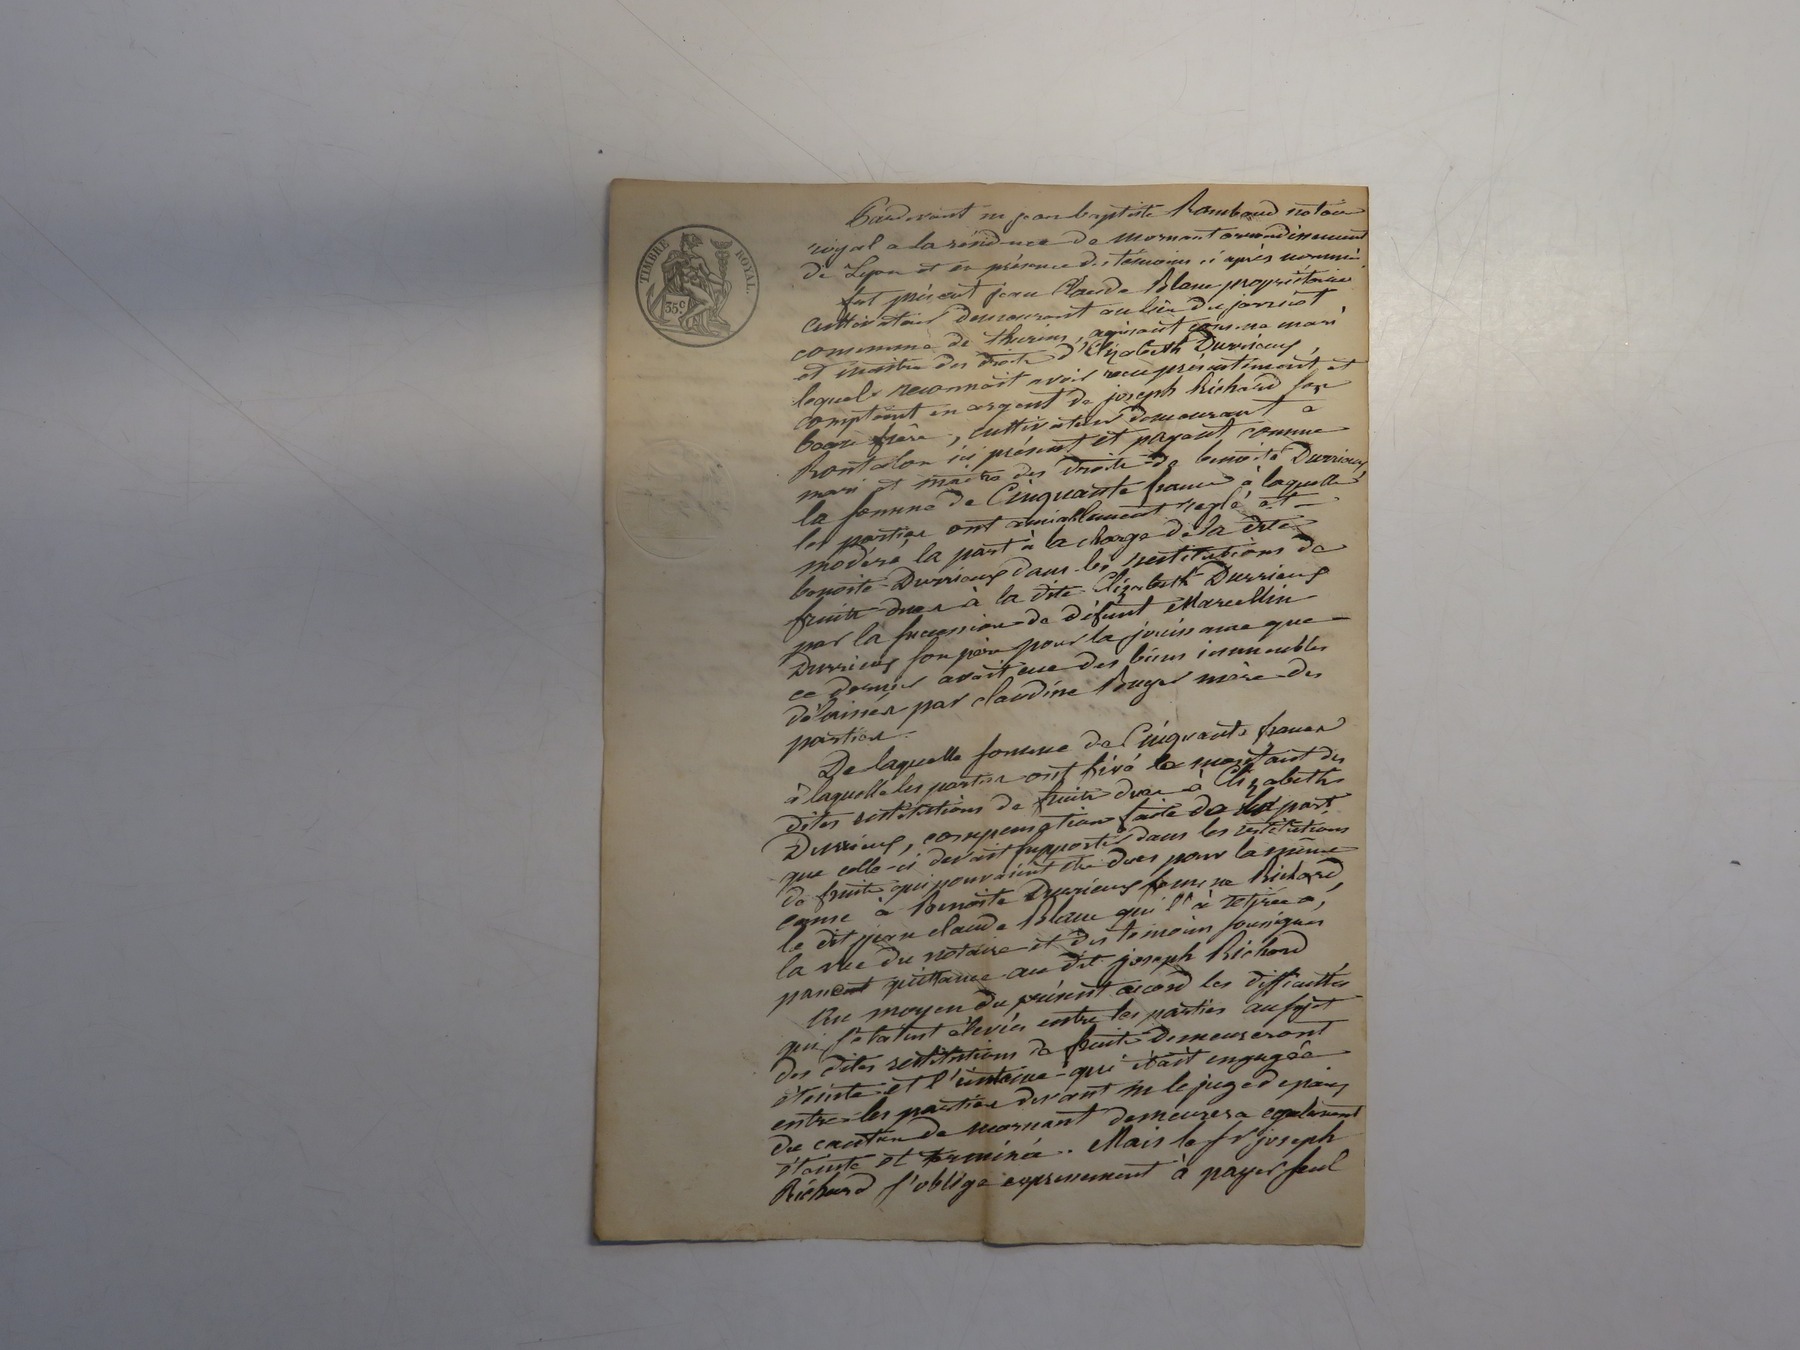 TIMBRE ROYAL.
35c.
Pardevant me jean baptiste Rambaud notaire
royal a la résidence de mornant arrondissement
de Lyon et en présence des témoins ci après nommés
fut présent jean Claude Blanc propriétaire
cultivateur demeurant au lieu du jarricot
commune de thurins, agissant comme mari
et maitre des droits d'Elizabeth Durrieux,
lequel reconnait avoir reçu présentement et
comptant en argent de joseph Richard son
beau frère, cultivateur demeurant a
Rontalon ici présent et payant comme
mari et maitre des droits de benoite Durrieux,
la somme de Cinquante francs à laquelle
les parties ont amiablement reglé et
modéré la part à la charge de la dite
benoite Durrieux dans les restitutions de
fruits dues à la dite Elizabeth Durrieux
par la succession de défunt Marcellin
Durrieux son père pour la jouissance que
ce dernier avait eue des biens immeubles
délaissés par claudine Buyer mère des
parties.
De laquelle somme de Cinquante francs
à laquelle les parties ont fixé le montant des
dites restitutions de fruits dues à Elizabeth
Durrieux, compensation faite de la part
que celle-ci devait supporter dans les restitutions
de fruits qui pouvaient être dues pour la même
cause à Benoite Durrieux femme Richard,
le dit jean claude Blanc qui l'a retirée a,
la vue du notaire et des temoins soussignés
passent quittance au dit joseph Richard
Au moyen du présent acord les difficultés
qui s'étaient élevées entre les parties au sujet
des dites restitutions de fruits demeureront
éteintes et l'instance qui était engagée
entre les parties devant m le juge de paix
du canton de mornant demeurera egalement
éteinte et terminée. Mais le sr joseph
Richard s'oblige expressement à payer seul